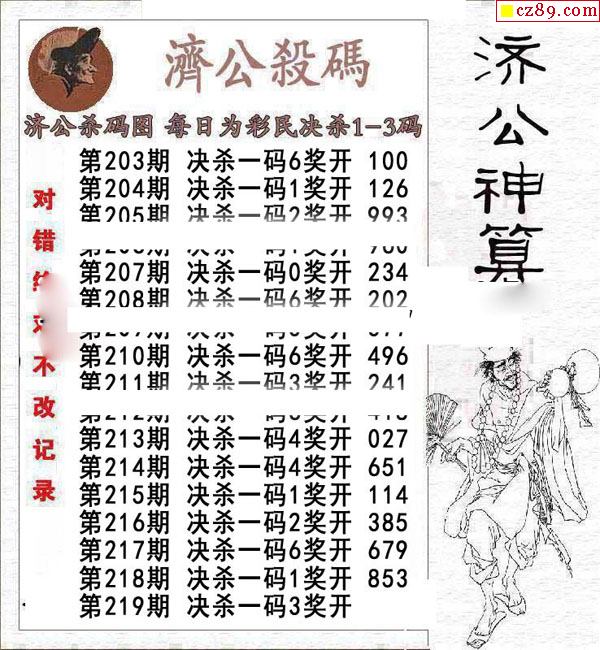 cz89.com
濟公殺碼
济公杀码图 每日为彩民决杀1-3码
第203期 决杀一码6奖开 100
第204期 决杀一码1奖开 126
第205期 决杀一码2奖开 993
第207期 决杀一码0奖开 234
第208期 决杀一码6奖开 202
第210期 决杀一码6奖开 496
第211期 决杀一码3奖开 241
第213期 决杀一码4奖开 027
第214期 决杀一码4奖开 651
第215期 决杀一码1奖开 114
第216期 决杀一码2奖开 385
第217期 决杀一码6奖开 679
第218期 决杀一码1奖开 853
第219期 决杀一码3奖开
对错 不改记录
济公神算